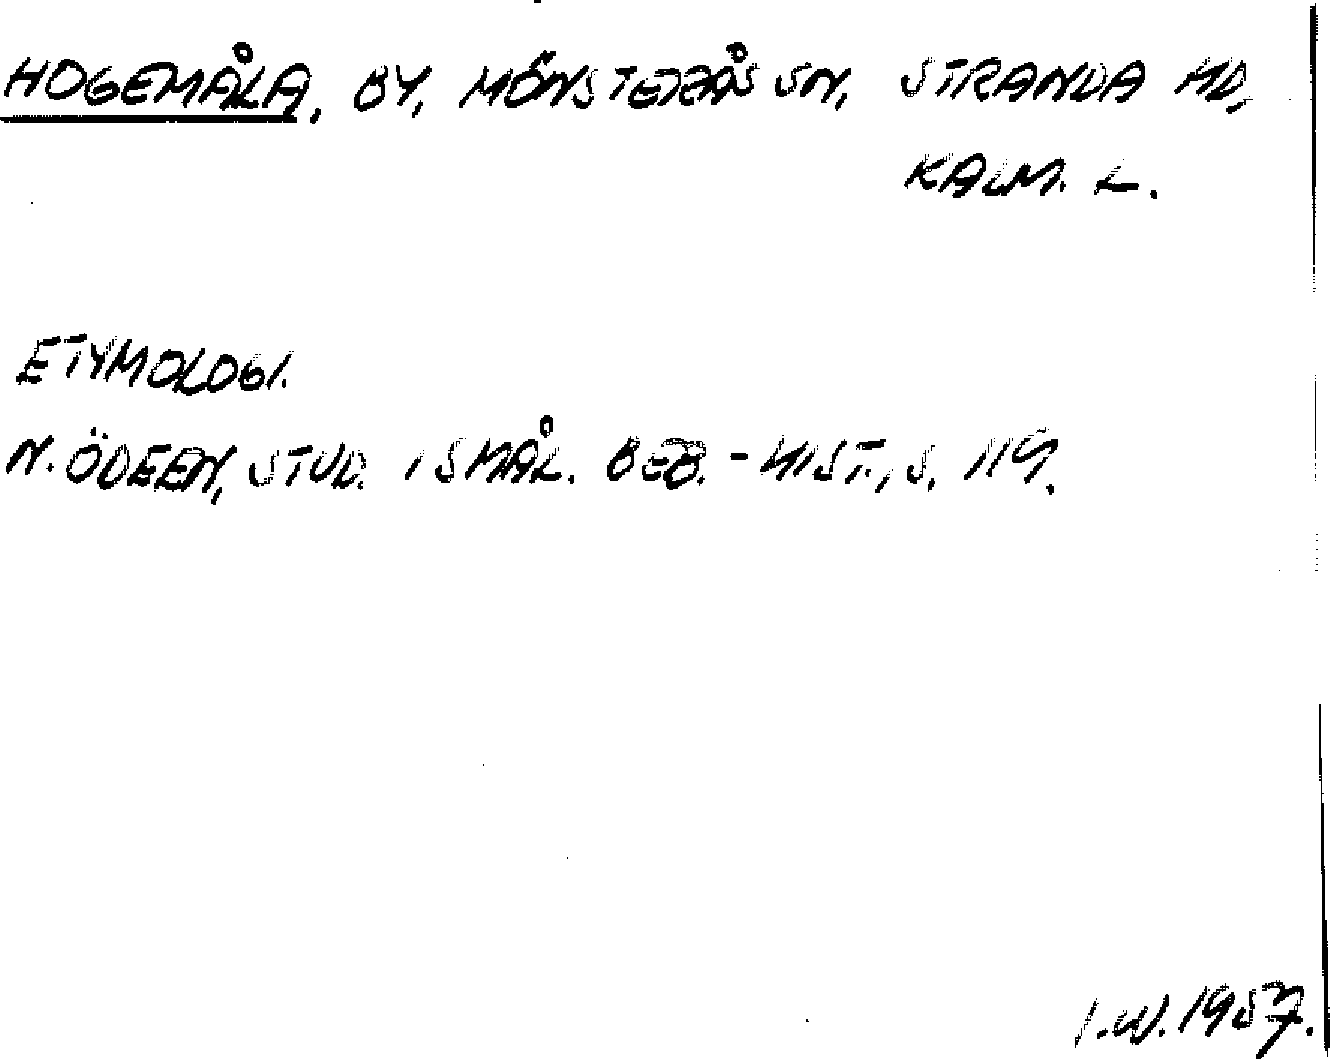 HOGEMÅLA, BY, MÖNSTERÅS SN, STRANDA HD,
KALM. L.
ETYMOLOGI.
N. ÖDEEN, STUD. I SMÅL. BEB.-HIST., S. 119.
I.W. 1957.